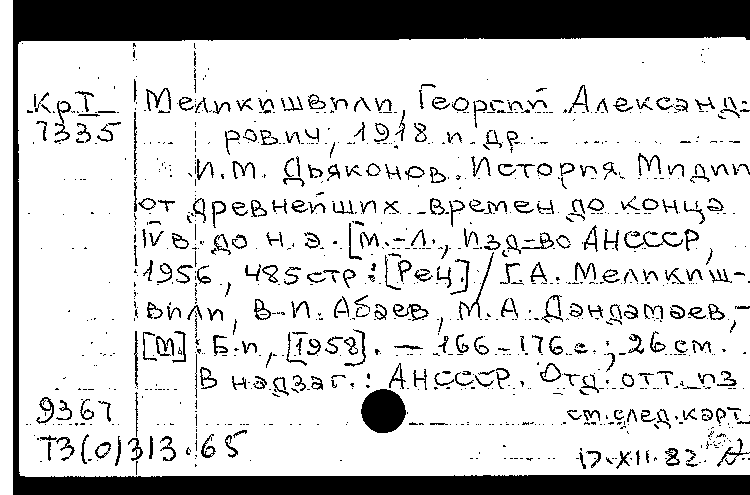 КрТ Меликишвили, Георгий Александ-
7335 рович, 1918 и др.
И.М. Дьяконов. История Мидии
от древнейших времен до конца
IV в. до н. э. [М.-Л., Изд-во АНСССР,
1956, 485 стр: [Рец.] / Г.А. Меликиш-
вили, В.И. Абаев, М.А. Дандамаев, -
[М]. Б.и, [1958]. — 166-176 с.; 26 см.
В надзаг.: АНСССР. Отд. отт. из
9367 см.след.карт
Т3(0)313.65 17.XII.82